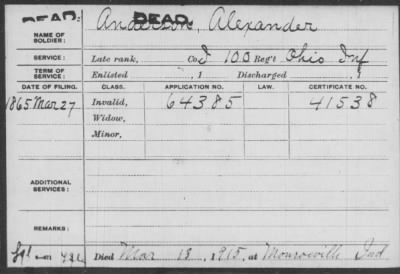 DEAD. DEAD
Anderson, Alexander
NAME OF SOLDIER:
SERVICE: Late rank, Co. I 100 Reg't Ohio Inf
TERM OF SERVICE: Enlisted , 1 Discharged , 1
DATE OF FILING. CLASS. APPLICATION NO. LAW. CERTIFICATE NO.
1865 Mar 27 Invalid, 64385 41538
Widow,
Minor,
ADDITIONAL SERVICES:
REMARKS:
Died Mar 18, 1915, at Monroeville Ind